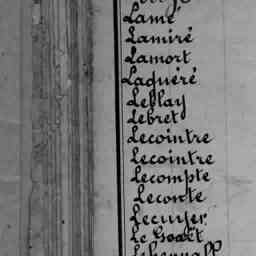 Lamé
Lamiré
Lamort
Laquéré
Leblay
Lebret
Lecointre
Lecointre
Lecompte
Leconte
Lecuyer